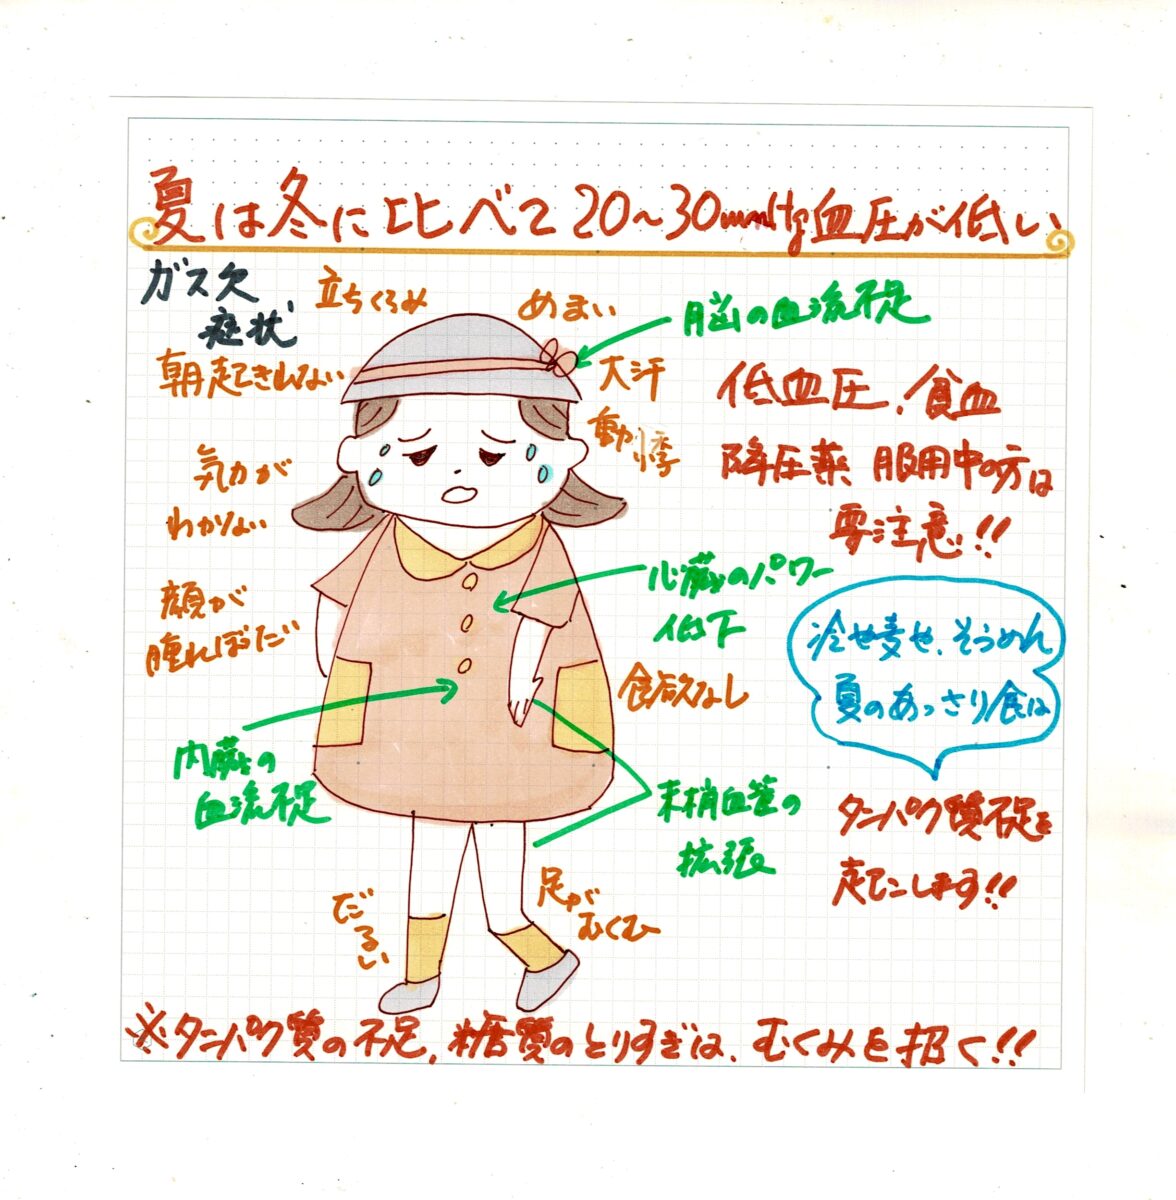 夏は冬に比べて20〜30mmHg血圧が低い
ガス欠
症状
立ちくらみ
めまい
脳の血流不足
朝起きれない
大汗
動悸
低血圧、貧血
降圧薬 服用中の方は
要注意!!
気力が
わかない
顔が
腫れぼだ
心臓のパワー
低下
食欲なし
冷せ麦せ、そうめん
夏のあっさり食は
内臓の
血流不足
末梢血管の
拡張
タンパク質不足を
起こします!!
だるい
足が
むくむ
※タンパク質の不足、糖質のとりすぎは、むくみを招く!!